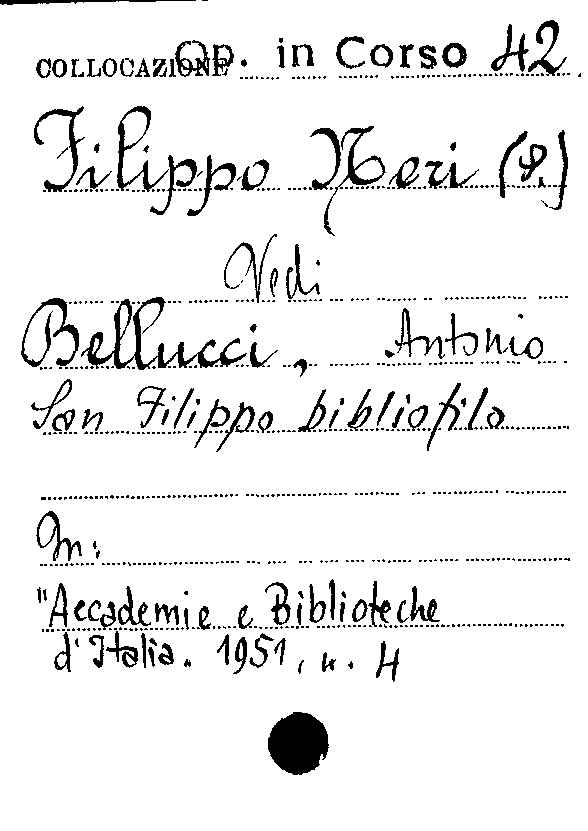 COLLOCAZIONE Op. in Corso 42
Filippo Neri (S.)
Vedi
Bellucci, Antonio
San Filippo bibliofilo
In:
"Accademie e Biblioteche
d'Italia. 1951, n. 4